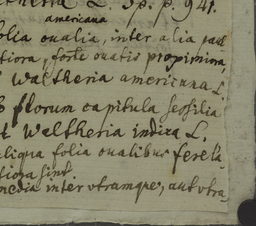 Waltheria L. Sp. p. 941.
americana
folia oualia, inter alia
tiora, forte ouatis propiora,
Waltheria americana L.
florum capitula sessilia
t. Waltheria indica L.
aliqua folia oualibus fere la
tiora sint
media inter vtramque, aut vtra